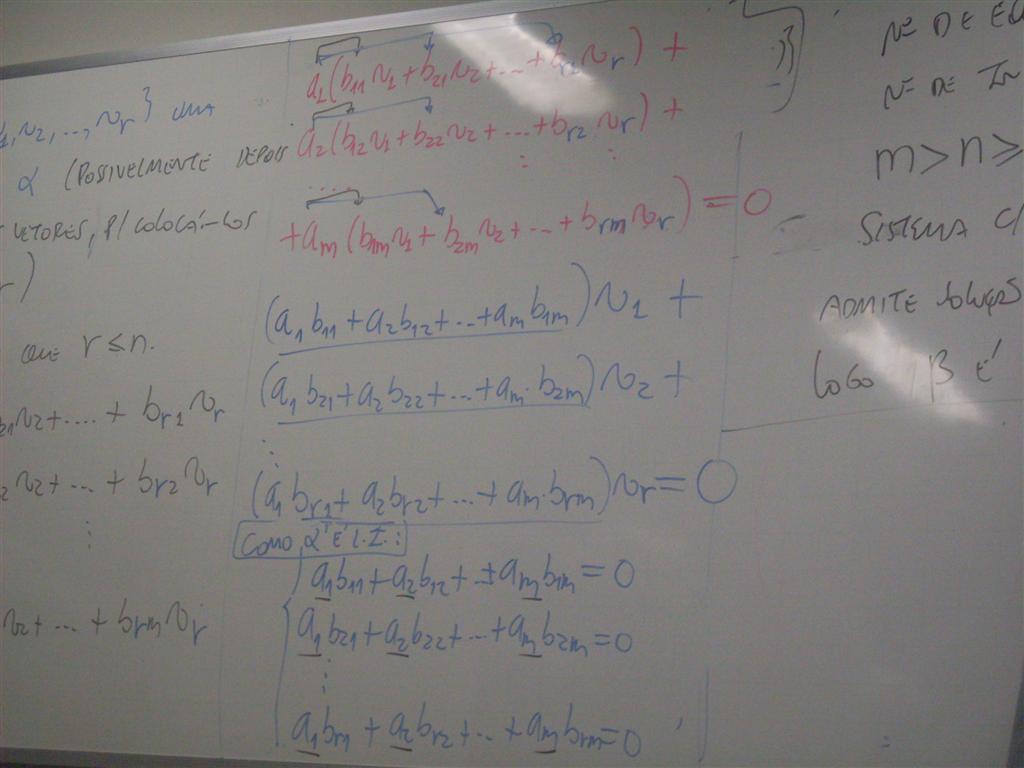 1, v2, ..., vr} uma
α (POSIVELMENTE DEPOIS
VETORES, P/ COLOCÁ-LOS
r)
QUE r ≤ n.
21v2 + .... + br1 vr
2 v2 + ... + br2 vr
⋮
v2 + ... + brm vr
a1(b11v1 + b21v2 + ... + br1vr) +
a2(b12v1 + b22v2 + ... + br2vr) +
.....
+ am(b1mv1 + b2mv2 + ... + brmvr) = 0
(a1b11 + a2b12 + ... + amb1m)v1 +
(a1b21 + a2b22 + ... + am·b2m)v2 +
⋮
(a1br1 + a2br2 + ... + am·brm)vr = 0
COMO, α' É L.I.:
a1b11 + a2b12 + ... + amb1m = 0
a1b21 + a2b22 + ... + amb2m = 0
⋮
a1br1 + a2br2 + ... + ambrm = 0
Nº DE
Nº DE IN
m > n ≥
SISTEMA C/
ADMITE
LOGO β É